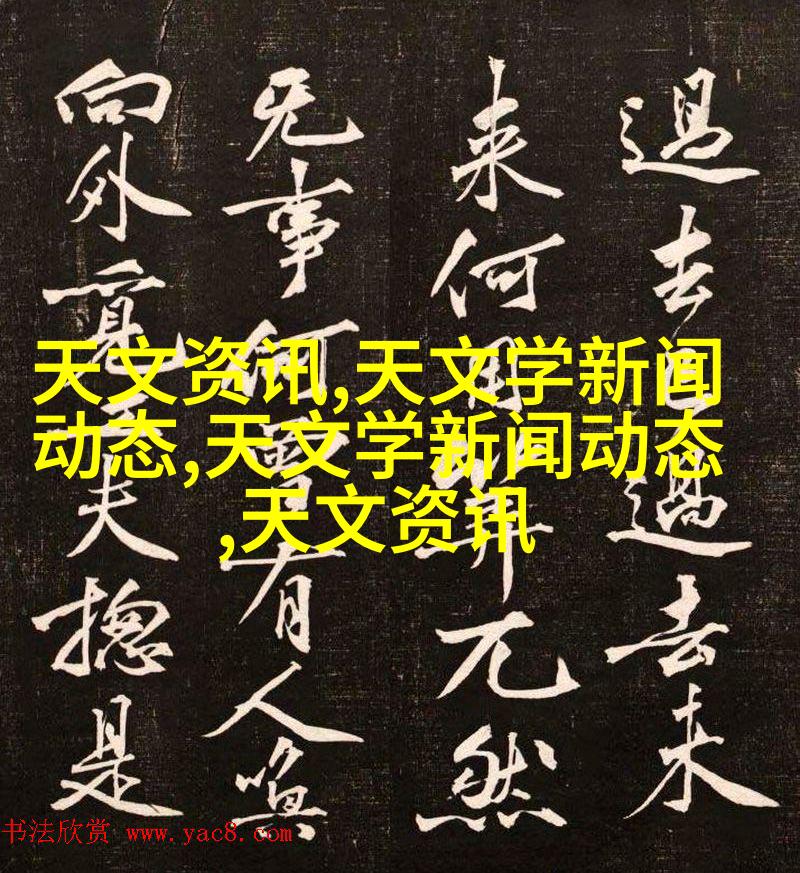 過去過去未
来何用算兀然
无事何曾有人喚
向外覓夫揔是
天文资讯,天文学新闻
动态,天文学新闻动态
,天文资讯
书法欣赏 www.yac8.com